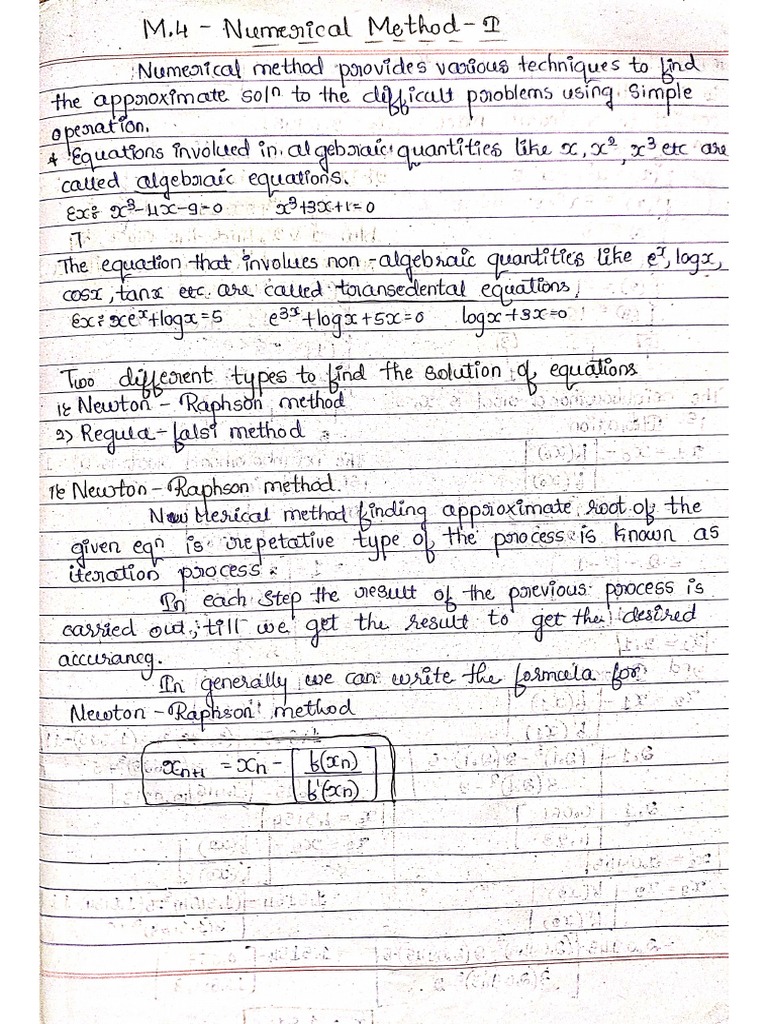 M.4 - Numerical Method-I
Numerical method provides various techniques to find
the approximate solⁿ to the difficult problems using simple
operation.
* Equations involued in algebraic quantities like x, x², x³ etc are
called algebraic equations.
Ex: x³-4x-9=0 x³+3x+1=0
The equation that involues non-algebraic quantities like eˣ, logx,
cosx, tanx etc. are called transedental equations.
Ex: xeˣ+logx=5 e³ˣ+logx+5x=0 logx+3x=0
Two different types to find the solution of equations
1) Newton-Raphson method
2) Regula-falsi method
1) Newton-Raphson method.
Numerical method finding approximate root of the
given eqⁿ is repetative type of the process is known as
iteration process.
In each step the result of the previous process is
carried out, till we get the result to get the desired
accurancy.
In generally we can write the formula for
Newton-Raphson method
xₙ₊₁ = xₙ - [f(xₙ)/f'(xₙ)]